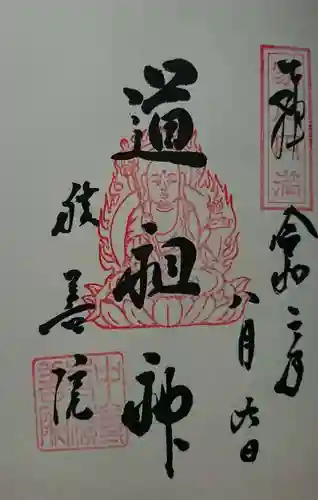 奉拝
令和二年
八月六日
道祖神
積善院